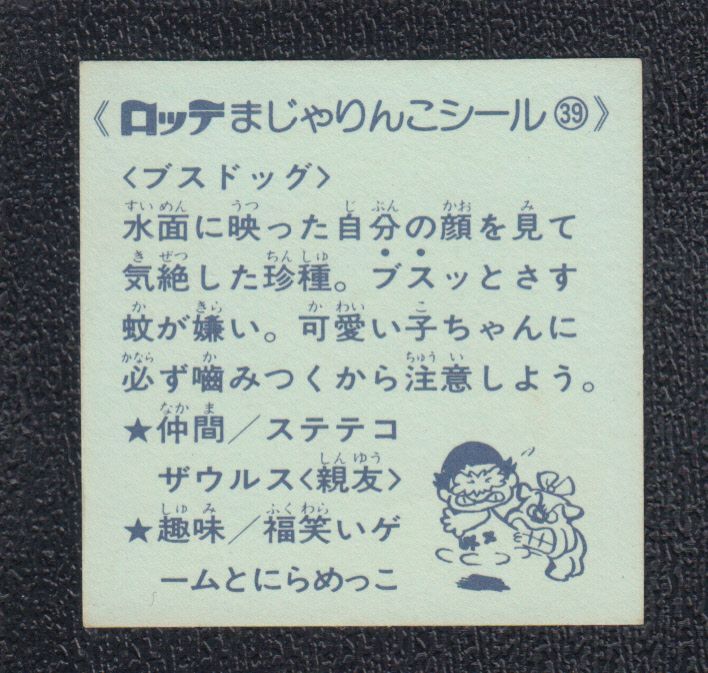 《ロッテまじゃりんこシール㊴》
〈ブスドッグ〉
水面に映った自分の顔を見て
気絶した珍種。ブスッとさす
蚊が嫌い。可愛い子ちゃんに
必ず嚙みつくから注意しよう。
★仲間／ステテコ
ザウルス〈親友〉
★趣味／福笑いゲ
ームとにらめっこ